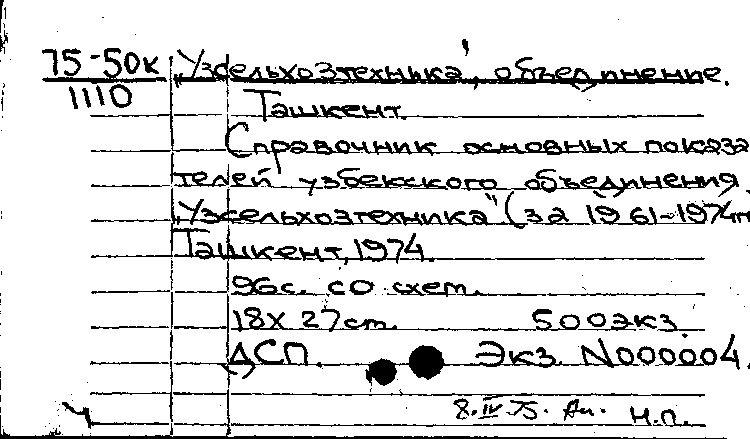 75-50к „Узсельхозтехника", объединение.
1110
Ташкент.
Справочник основных показа
телей узбекского объединения
„Узсельхозтехника" (за 1961-1974гг
Ташкент, 1974.
96с. со схем.
18х27см. 500экз.
ДСП. Экз. N000004.
8.IV.75. Н.П.
Ч